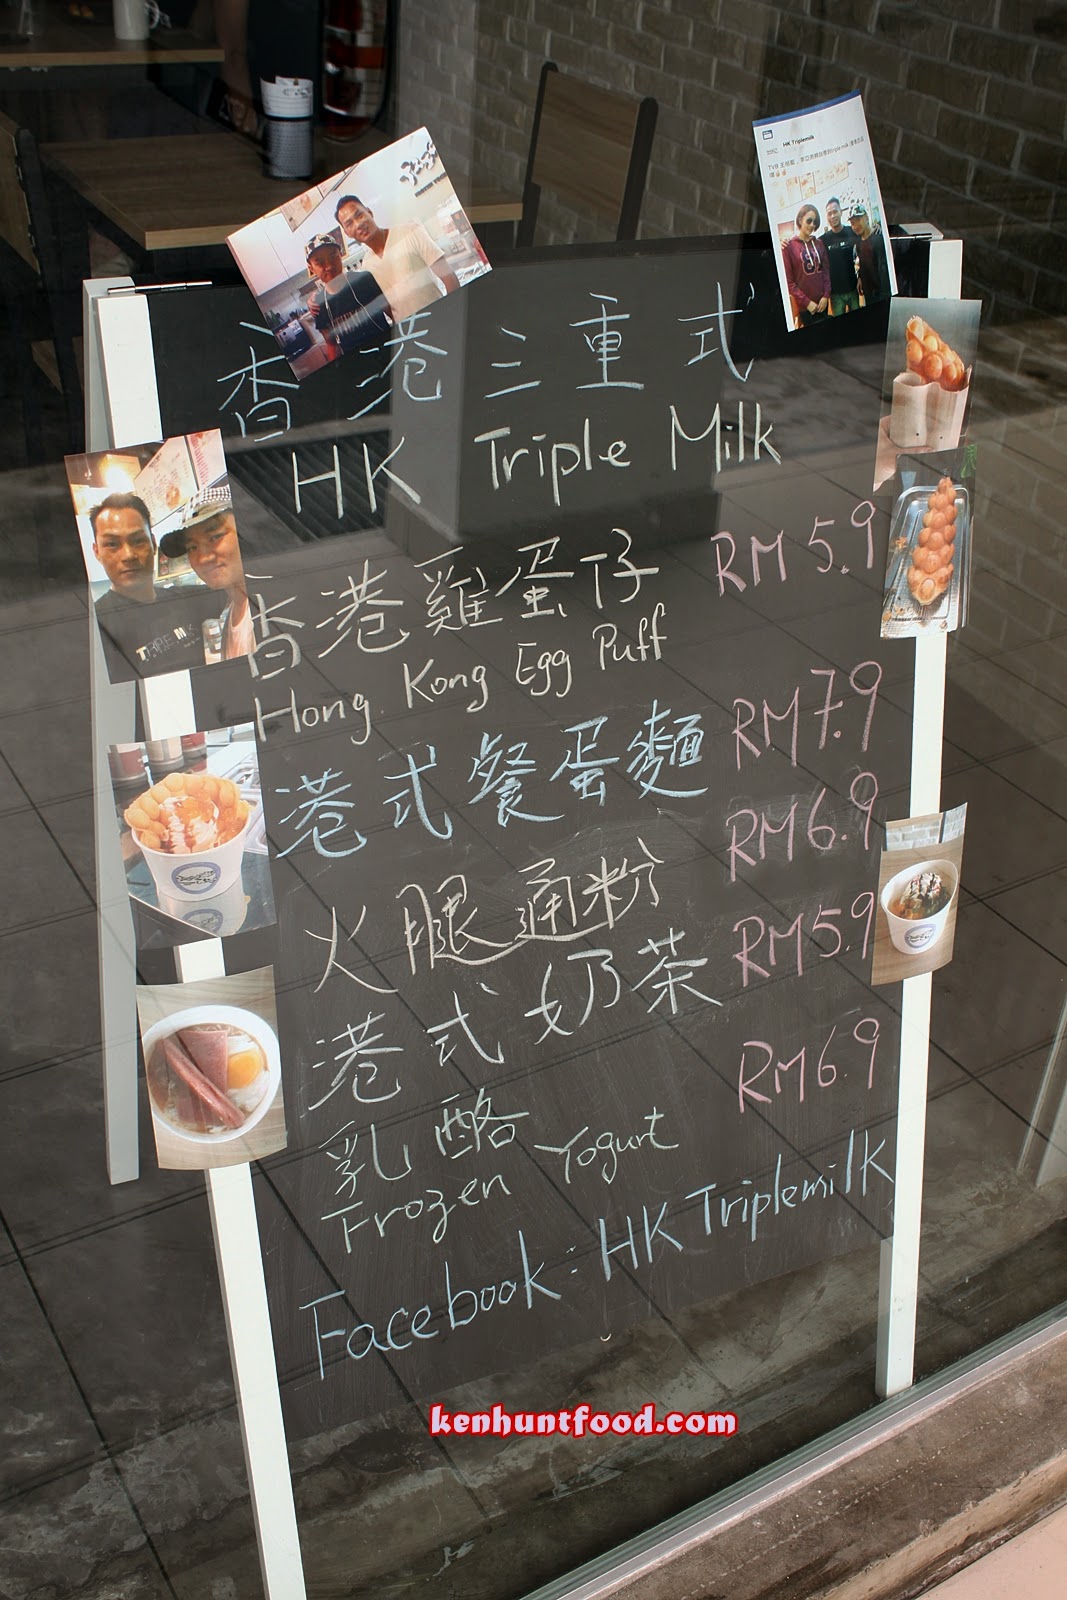 HK Triplemilk
香港三重式
HK Triple Milk
香港雞蛋仔 RM 5.9
Hong Kong Egg Puff
港式餐蛋麵 RM 7.9
火腿通粉 RM 6.9
港式奶茶 RM 5.9
乳酪 RM 6.9
Frozen Yogurt
Facebook: HK Triplemilk
kenhuntfood.com